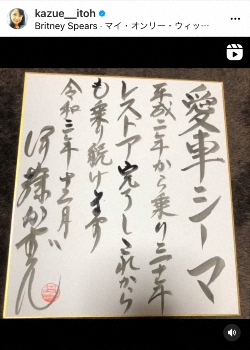 kazue__itoh
Britney Spears · マイ・オンリー・ウィッ…
愛車シーマ
平成二年から乗り三十年
レストア完了しこれから
も乗り続けます
令和三年十二月
伊藤かずえ